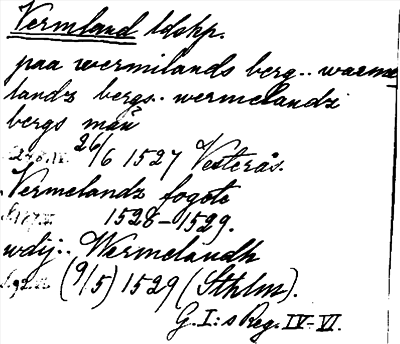 Vermland ldskp.
paa wermilands berg.. warme
landz bergs.. wermelandz
bergs män
26/6 1527 Vesterås.
Vermelandz fogote
1528–1529.
wdij.. Wermelandh
(9/5) 1529 (Sthlm).
G. I:s Reg. IV–VI.